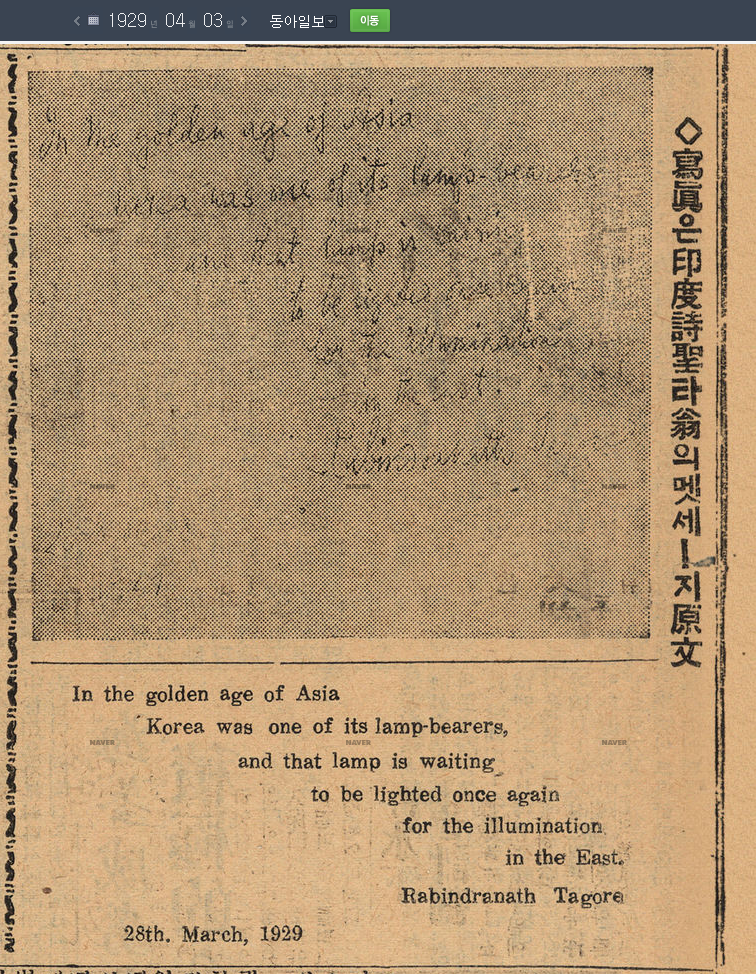 1929년 04월 03일 동아일보 이동
In the golden age of Asia
Korea was one of its lamp-bearers
and that lamp is waiting
to be lighted once again
for the illumination
in the East.
Rabindranath
◇寫眞은印度詩聖타翁의멧세ㅣ지原文
In the golden age of Asia
Korea was one of its lamp-bearers,
and that lamp is waiting
to be lighted once again
for the illumination
in the East.
Rabindranath Tagore
28th. March, 1929
NAVER NAVER NAVER
NAVER NAVER NAVER
NAVER NAVER NAVER